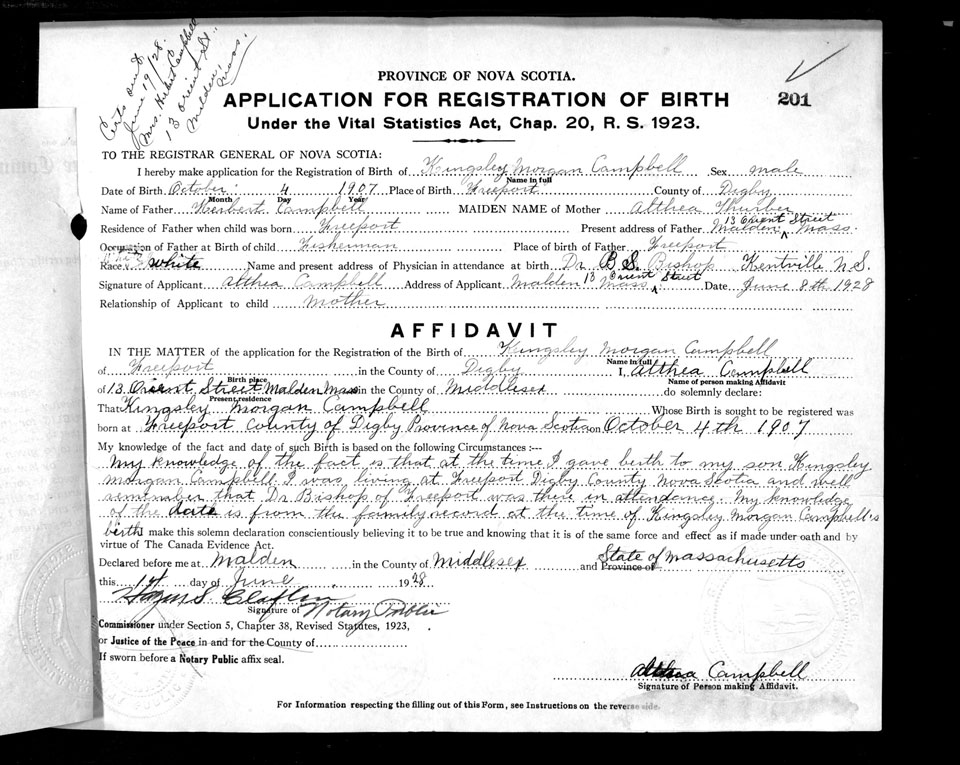 Certs out
June 19/28.
Mrs. Herbert Campbell
13 Orient St.,
Malden, Mass.
PROVINCE OF NOVA SCOTIA.
APPLICATION FOR REGISTRATION OF BIRTH
201
Under the Vital Statistics Act, Chap. 20, R. S. 1923.
TO THE REGISTRAR GENERAL OF NOVA SCOTIA:
I hereby make application for the Registration of Birth of Kingsley Morgan Campbell Sex male
Name in full
Date of Birth October 4 1907 Place of Birth Freeport County of Digby
Month Day Year
Name of Father Herbert Campbell MAIDEN NAME of Mother Althea Thurber
13 Orient Street
Residence of Father when child was born Freeport Present address of Father Malden Mass.
Occupation of Father at Birth of child Fisherman Place of birth of Father Freeport
Race White Name and present address of Physician in attendance at birth Dr B S. Bishop Kentville N.S.
13 Orient Street
Signature of Applicant Althea Campbell Address of Applicant Malden Mass. Date June 8th 1928
Relationship of Applicant to child Mother
AFFIDAVIT
IN THE MATTER of the application for the Registration of the Birth of Kingsley Morgan Campbell
Name in full
of Freeport in the County of Digby I, Althea Campbell
Birth place Name of person making Affidavit
of 13 Orient Street Malden Mass in the County of Middlesex do solemnly declare:
Present residence
That Kingsley Morgan Campbell Whose Birth is sought to be registered was
born at Freeport County of Digby Province of Nova Scotia on October 4th 1907
My knowledge of the fact and date of such Birth is based on the following Circumstances :---
My knowledge of the fact is that at the time I gave birth to my son Kingsley
Morgan Campbell I was living at Freeport Digby County Nova Scotia and well
remember that Dr Bishop of Freeport was there in attendance. My knowledge
of the date is from the family record at the time of Kingsley Morgan Campbell's
birth I make this solemn declaration conscientiously believing it to be true and knowing that it is of the same force and effect as if made under oath and by
virtue of The Canada Evidence Act.
Declared before me at Malden in the County of Middlesex and Province of State of Massachusetts
this 1st day of June 1928
Claflin
Signature of Notary Public
Commissioner under Section 5, Chapter 38, Revised Statutes, 1923,
or Justice of the Peace in and for the County of
If sworn before a Notary Public affix seal.
Althea Campbell
Signature of Person making Affidavit.
For Information respecting the filling out of this Form, see Instructions on the reverse side.